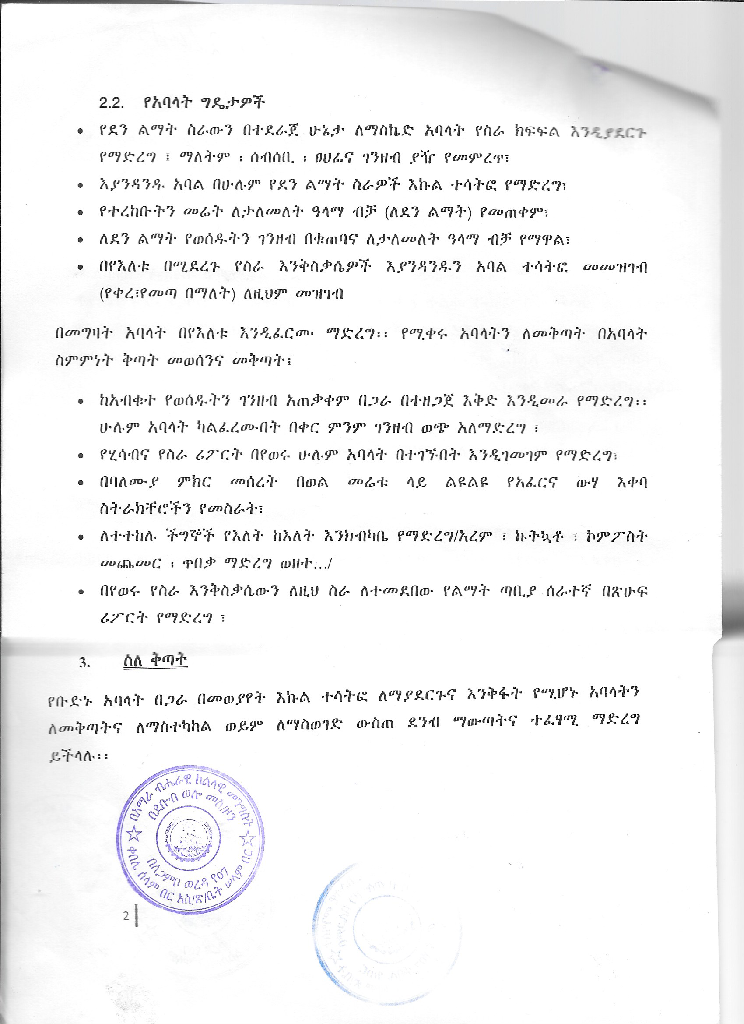 2.2. የአባላት ግዴታዎች
• የደን ልማት ስራውን በተደራጀ ሁኔታ ለማስኬድ አባላት የስራ ክፍፍል እንዲያደርጉ
የማድረግ ፣ ማለትም ፣ ሰብሰቢ ፣ ፀሀፊና ገንዘብ ያዥ የመምረጥ፣
• እያንዳንዱ አባል በሁሉም የደን ልማት ስራዎች እኩል ተሳትፎ የማድረግ፣
• የተረከቡትን መሬት ለታለመለት ዓላማ ብቻ (ለደን ልማት) የመጠቀም፣
• ለደን ልማት የወሰዱትን ገንዘብ በቁጠባና ለታለመለት ዓላማ ብቻ የማዋል፣
• በየእለቱ በሚደረጉ የስራ እንቅስቃሴዎች እያንዳንዱን አባል ተሳትፎ መመዝገብ
(የቀረ፣የመጣ በማለት) ለዚህም መዝገብ
በመግባት አባላት በየእለቱ እንዲፈርሙ ማድረግ፡፡ የሚቀሩ አባላትን ለመቅጣት በአባላት
ስምምነት ቅጣት መወሰንና መቅጣት፤
• ከአብቁተ የወሰዱትን ገንዘብ አጠቃቀም በጋራ በተዘጋጀ እቅድ እንዲመራ የማድረግ፡፡
ሁሉም አባላት ካልፈረሙበት በቀር ምንም ገንዘብ ወጭ አለማድረግ ፣
• የሂሳብና የስራ ሪፖርት በየወሩ ሁሉም አባላት በተገኙበት እንዲገመገም የማድረግ፣
• በባለሙያ ምክር መሰረት በወል መሬቱ ላይ ልዩልዩ የአፈርና ውሃ እቀባ
ስትራክቸሮችን የመስራት፣
• ለተተከሉ ችግኞች የእለት ከእለት እንክብካቤ የማድረግ/አረም ፣ ኩትኳቶ ፣ ኮምፖስት
መጨመር ፣ ጥበቃ ማድረግ ወዘተ.../
• በየወሩ የስራ እንቅስቃሴውን ለዚህ ስራ ለተመደበው የልማት ጣቢያ ሰራተኛ በጽሁፍ
ሪፖርት የማድረግ ፣
3. ስለ ቅጣት
የቡድኑ አባላት በጋራ በመወያየት እኩል ተሳትፎ ለማያደርጉና እንቅፋት የሚሆኑ አባላትን
ለመቅጣትና ለማስተካከል ወይም ለማስወገድ ውስጠ ደንብ ማውጣትና ተፈፃሚ ማድረግ
ይችላሉ፡፡
በአማራ ብሔራዊ ክልላዊ መንግስት
በደቡብ ወሎ መስ/ዞን
2